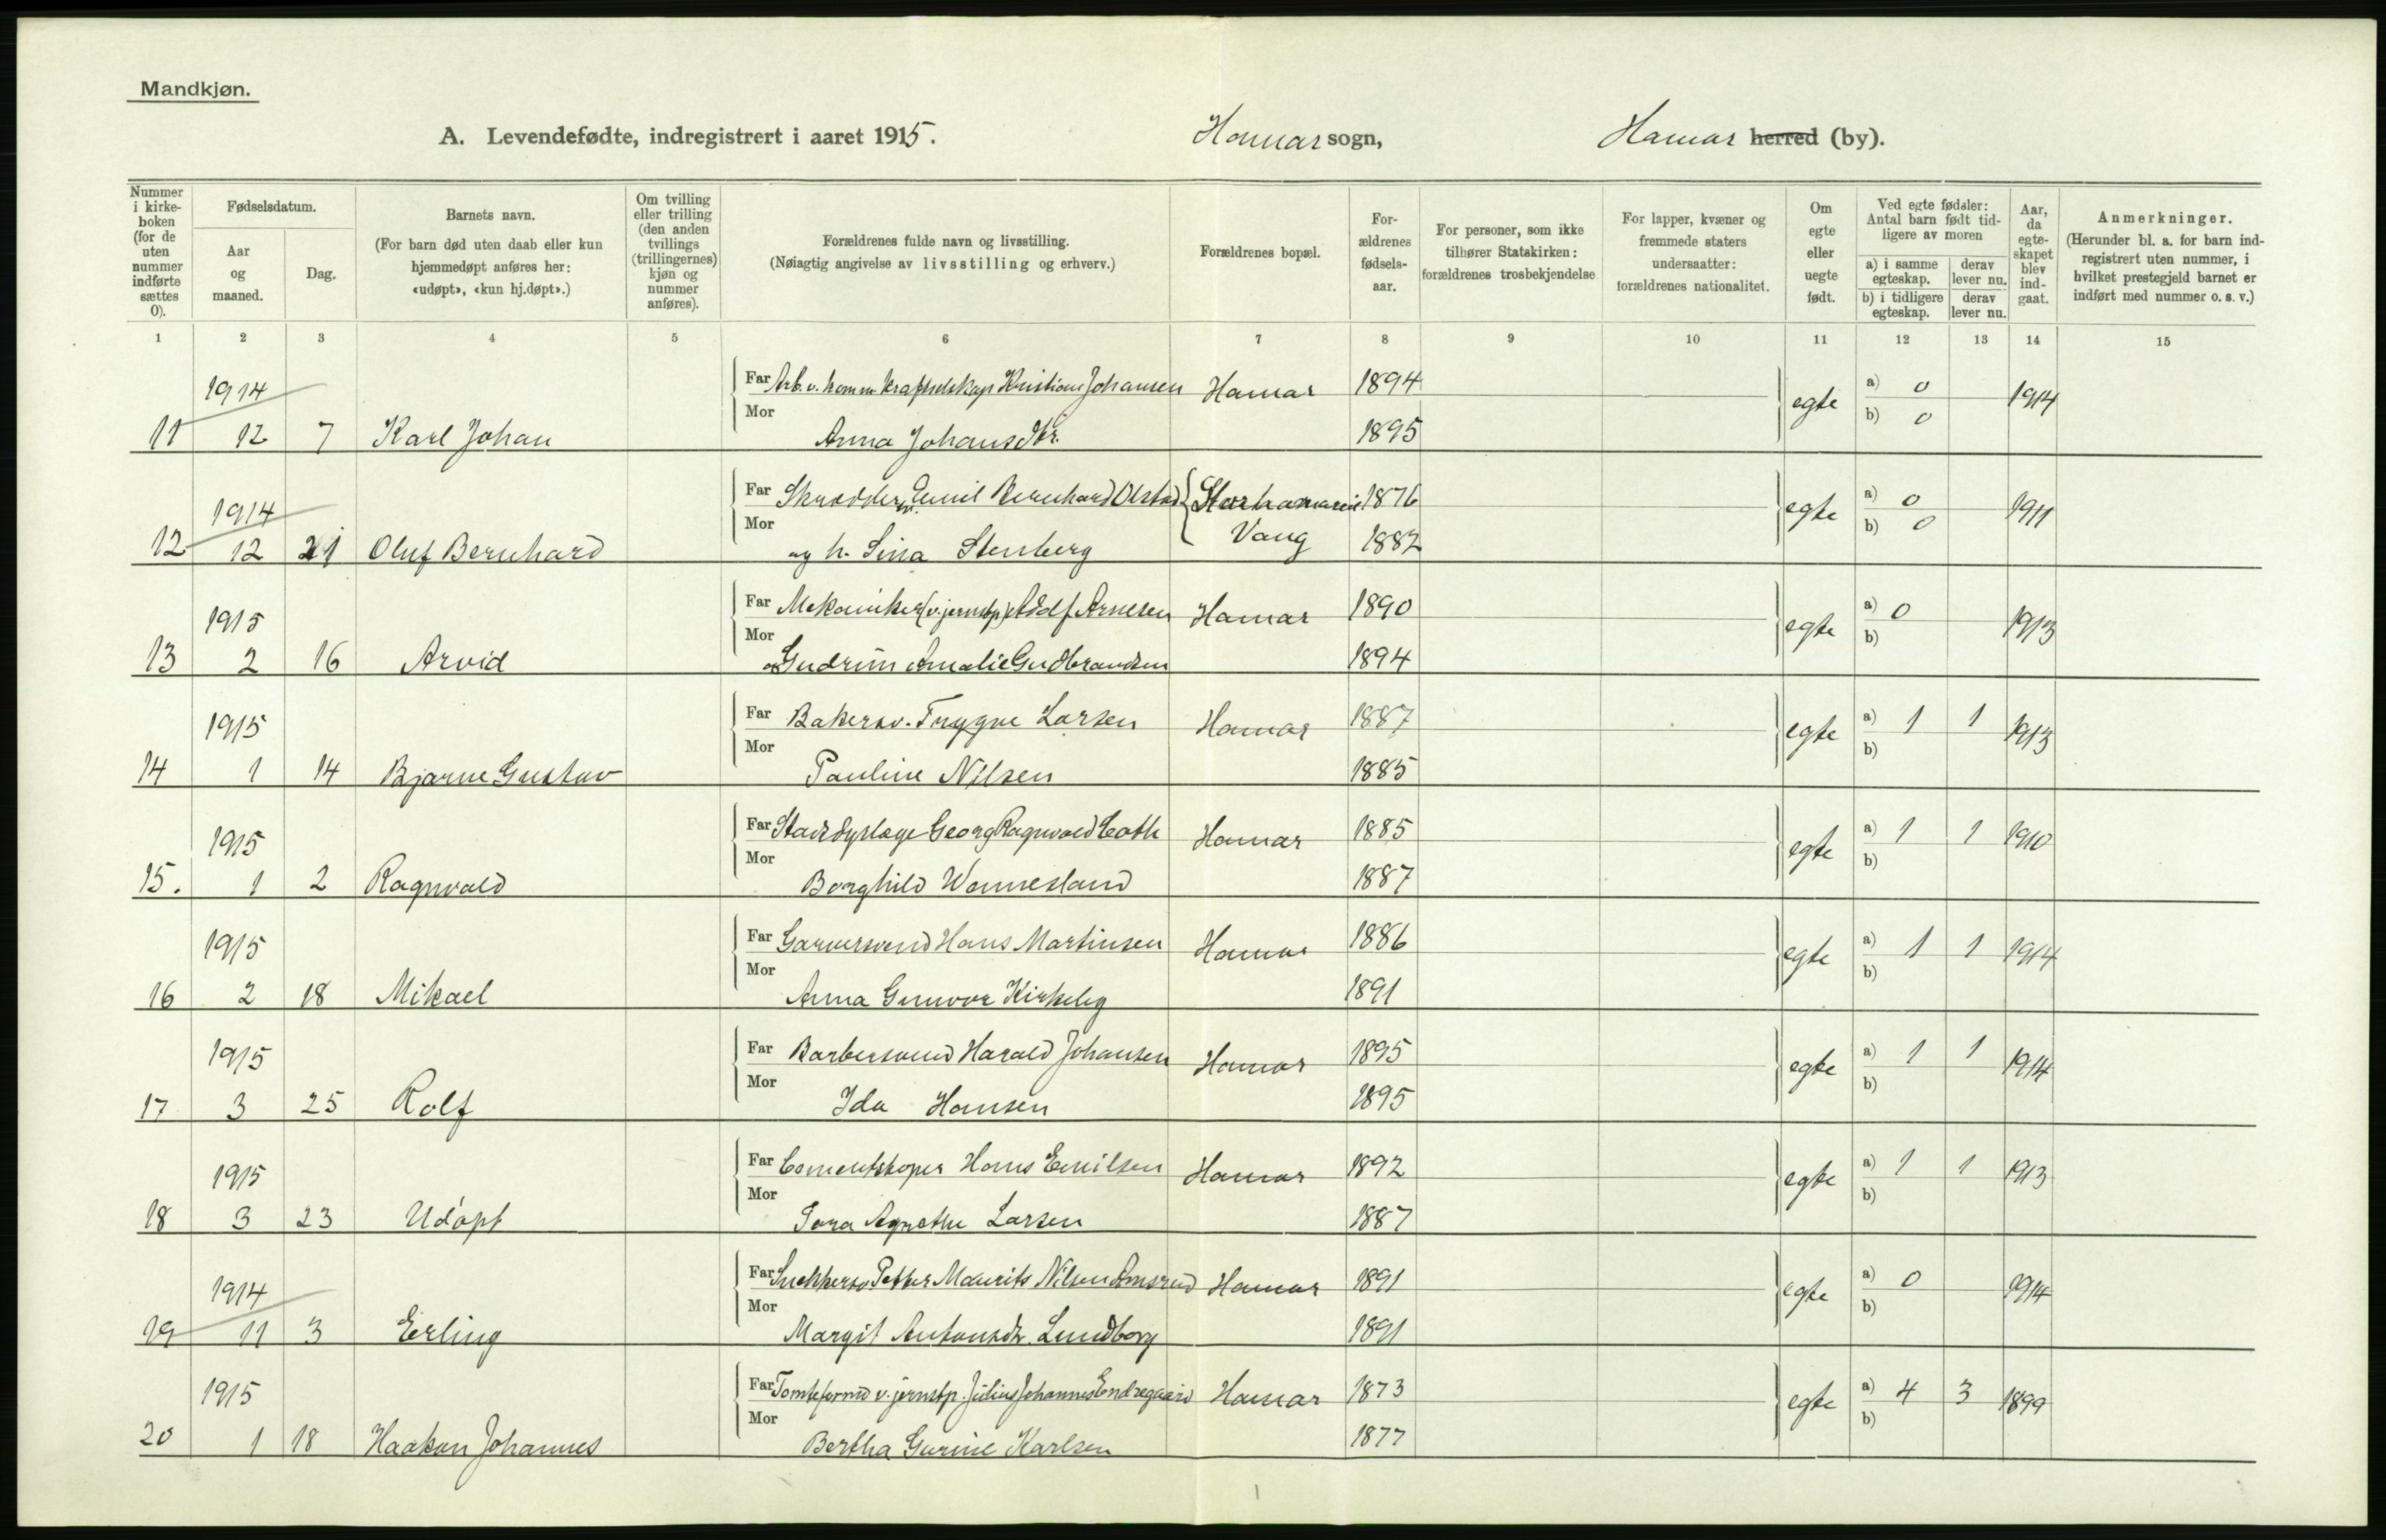 Mandkjøn.
A. Levendefødte, indregistrert i aaret 1915. Hamar sogn, Hamar herred (by).
Nummer i kirke-boken (for de uten nummer indførte sættes 0).
Fødselsdatum.
Aar og maaned.
Dag.
Barnets navn.
(For barn død uten daab eller kun hjemmedøpt anføres her: «udøpt», «kun hj.døpt».)
Om tvilling eller trilling (den anden tvillings (trillingernes) kjøn og nummer anføres).
Forældrenes fulde navn og livsstilling.
(Nøiagtig angivelse av livsstilling og erhverv.)
Forældrenes bopæl.
For-ældrenes fødsels-aar.
For personer, som ikke tilhører Statskirken: forældrenes trosbekjendelse
For lapper, kvæner og fremmede staters undersaatter: forældrenes nationalitet.
Om egte eller uegte født.
Ved egte fødsler: Antal barn født tid-ligere av moren
a) i samme egteskap. derav lever nu.
b) i tidligere egteskap. derav lever nu.
Aar, da egte-skapet blev ind-gaat.
Anmerkninger.
(Herunder bl. a. for barn ind-registrert uten nummer, i hvilket prestegjeld barnet er indført med nummer o. s. v.)
1 2 3 4 5 6 7 8 9 10 11 12 13 14 15
1914 Far Arb. v. komm. Kristian Johansen Hamar 1894 egte a) 0 1914
11 12 7 Karl Johan Mor Anna Johansdtr. 1895 b) 0
1914 Far Skrædderm. Emil Bernhard Olstad Storhamarei 1876 egte a) 0 1911
12 12 21 Oluf Bernhard Mor og h. Lina Stenberg Vang 1882 b) 0
1915 Far Mekaniker (v. jernbp) Adolf Arnesen Hamar 1890 egte a) 0 1913
13 2 16 Arvid Mor og Gudrun Amalie Gudbrandsen 1894 b)
1915 Far Bakersv. Trygve Larsen Hamar 1887 egte a) 1 1 1913
14 1 14 Bjarne Gustav Mor Pauline Nilsen 1885 b)
1915 Far Stadsdyrlæge Georg Ragnvald Hamar 1885 egte a) 1 1 1910
15. 1 2 Ragnvald Mor Borghild Wennesland 1887 b)
1915 Far Garversvend Hans Martinsen Hamar 1886 egte a) 1 1 1914
16 2 18 Mikael Mor Anna Gunvor Kirkeby 1891 b)
1915 Far Barbersvend Harald Johansen Hamar 1895 egte a) 1 1 1914
17 3 25 Rolf Mor Ida Hansen 1895 b)
1915 Far Cementstøper Hans Emilsen Hamar 1892 egte a) 1 1 1913
18 3 23 Udøpt Mor Agnethe Larsen 1887 b)
1914 Far Snekkersv. Petter Maurits Nilsen Hamar 1891 egte a) 0 1914
19 11 3 Erling Mor Margit Antonsdtr. Lundborg 1891 b)
1915 Far Tomteformd v. jernbp. Julius Johannes Endregaard Hamar 1873 egte a) 4 3 1899
20 1 18 Haakon Johannes Mor Bertha Gurine Karlsen 1877 b)